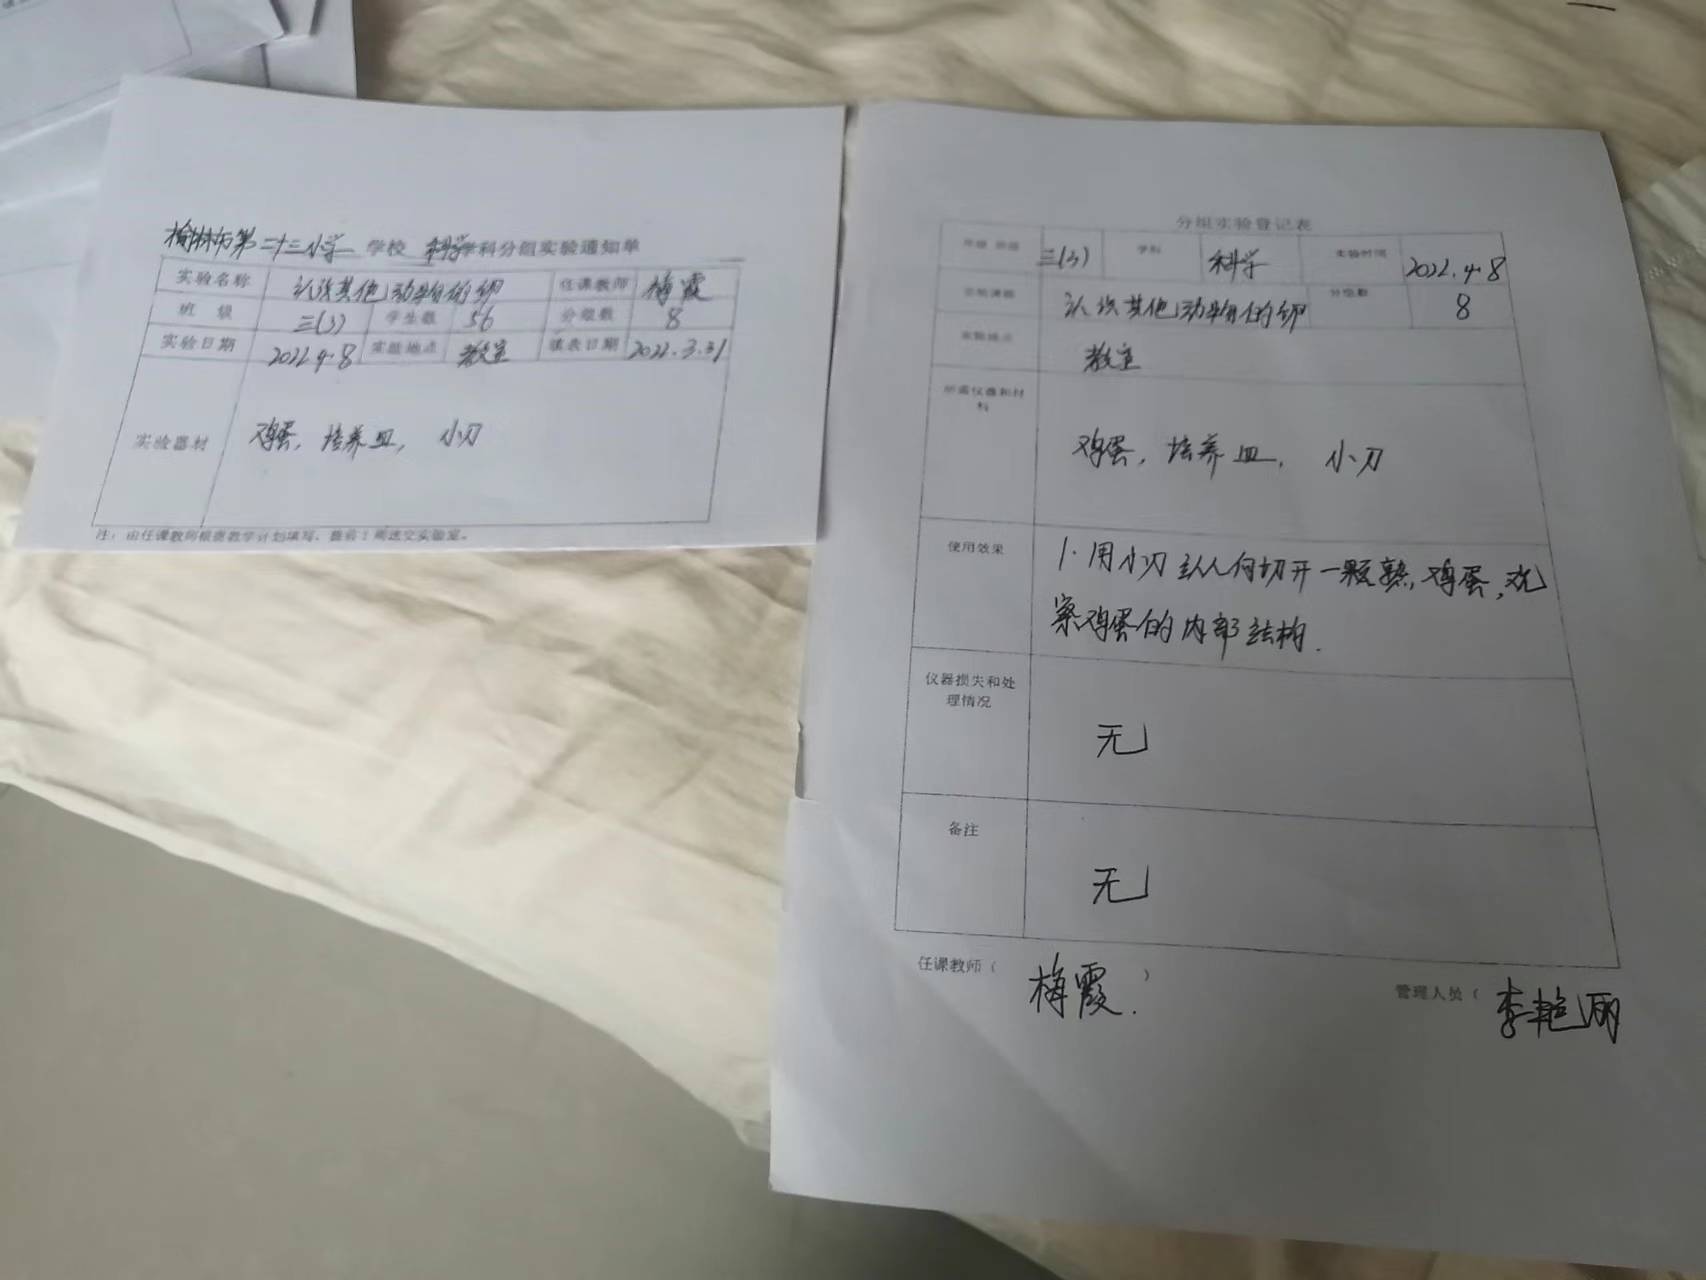 榆林市第二十三小学 学校 科学学科分组实验通知单
实验名称 认识其他动物的卵 任课教师 梅霞
班 级 三(3) 学生数 56 分组数 8
实验日期 2022.4.8 实验地点 教室 填表日期 2022.3.31
实验器材 鸡蛋，培养皿， 小刀
注：由任课教师根据教学计划填写，提前1周送交实验室。
分组实验登记表
年级 班级 三(3) 学科 科学 实验时间 2022.4.8
实验课题 认识其他动物的卵 分组数 8
实验地点 教室
所需仪器和材
料
鸡蛋，培养皿， 小刀
使用效果 1.用小刀纵向切开一颗熟鸡蛋，观
察鸡蛋的内部结构.
仪器损失和处
理情况
无
备注
无
任课教师（ 梅霞. ）
管理人员（ 李艳丽